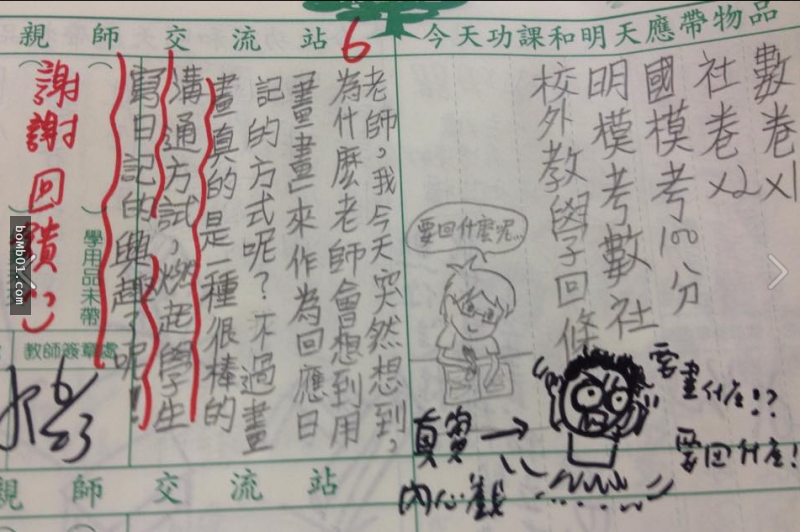 親師交流站
6
今天功課和明天應帶物品
數卷x1
社卷x2
國模考100分
明模考數社
校外教學回條
老師,我今天突然想到,
為什麼老師會想到用
「畫畫」來作為回應日
記的方式呢?不過畫
畫真的是一種很棒的
溝通方試,燃起學生
寫日記的興趣了呢!
謝謝回饋
學用品未帶
教師簽章處
要回什麼呢...
要畫什麼!?
要回什麼!
真實→
內心戲
親師交流站
bomb01.com